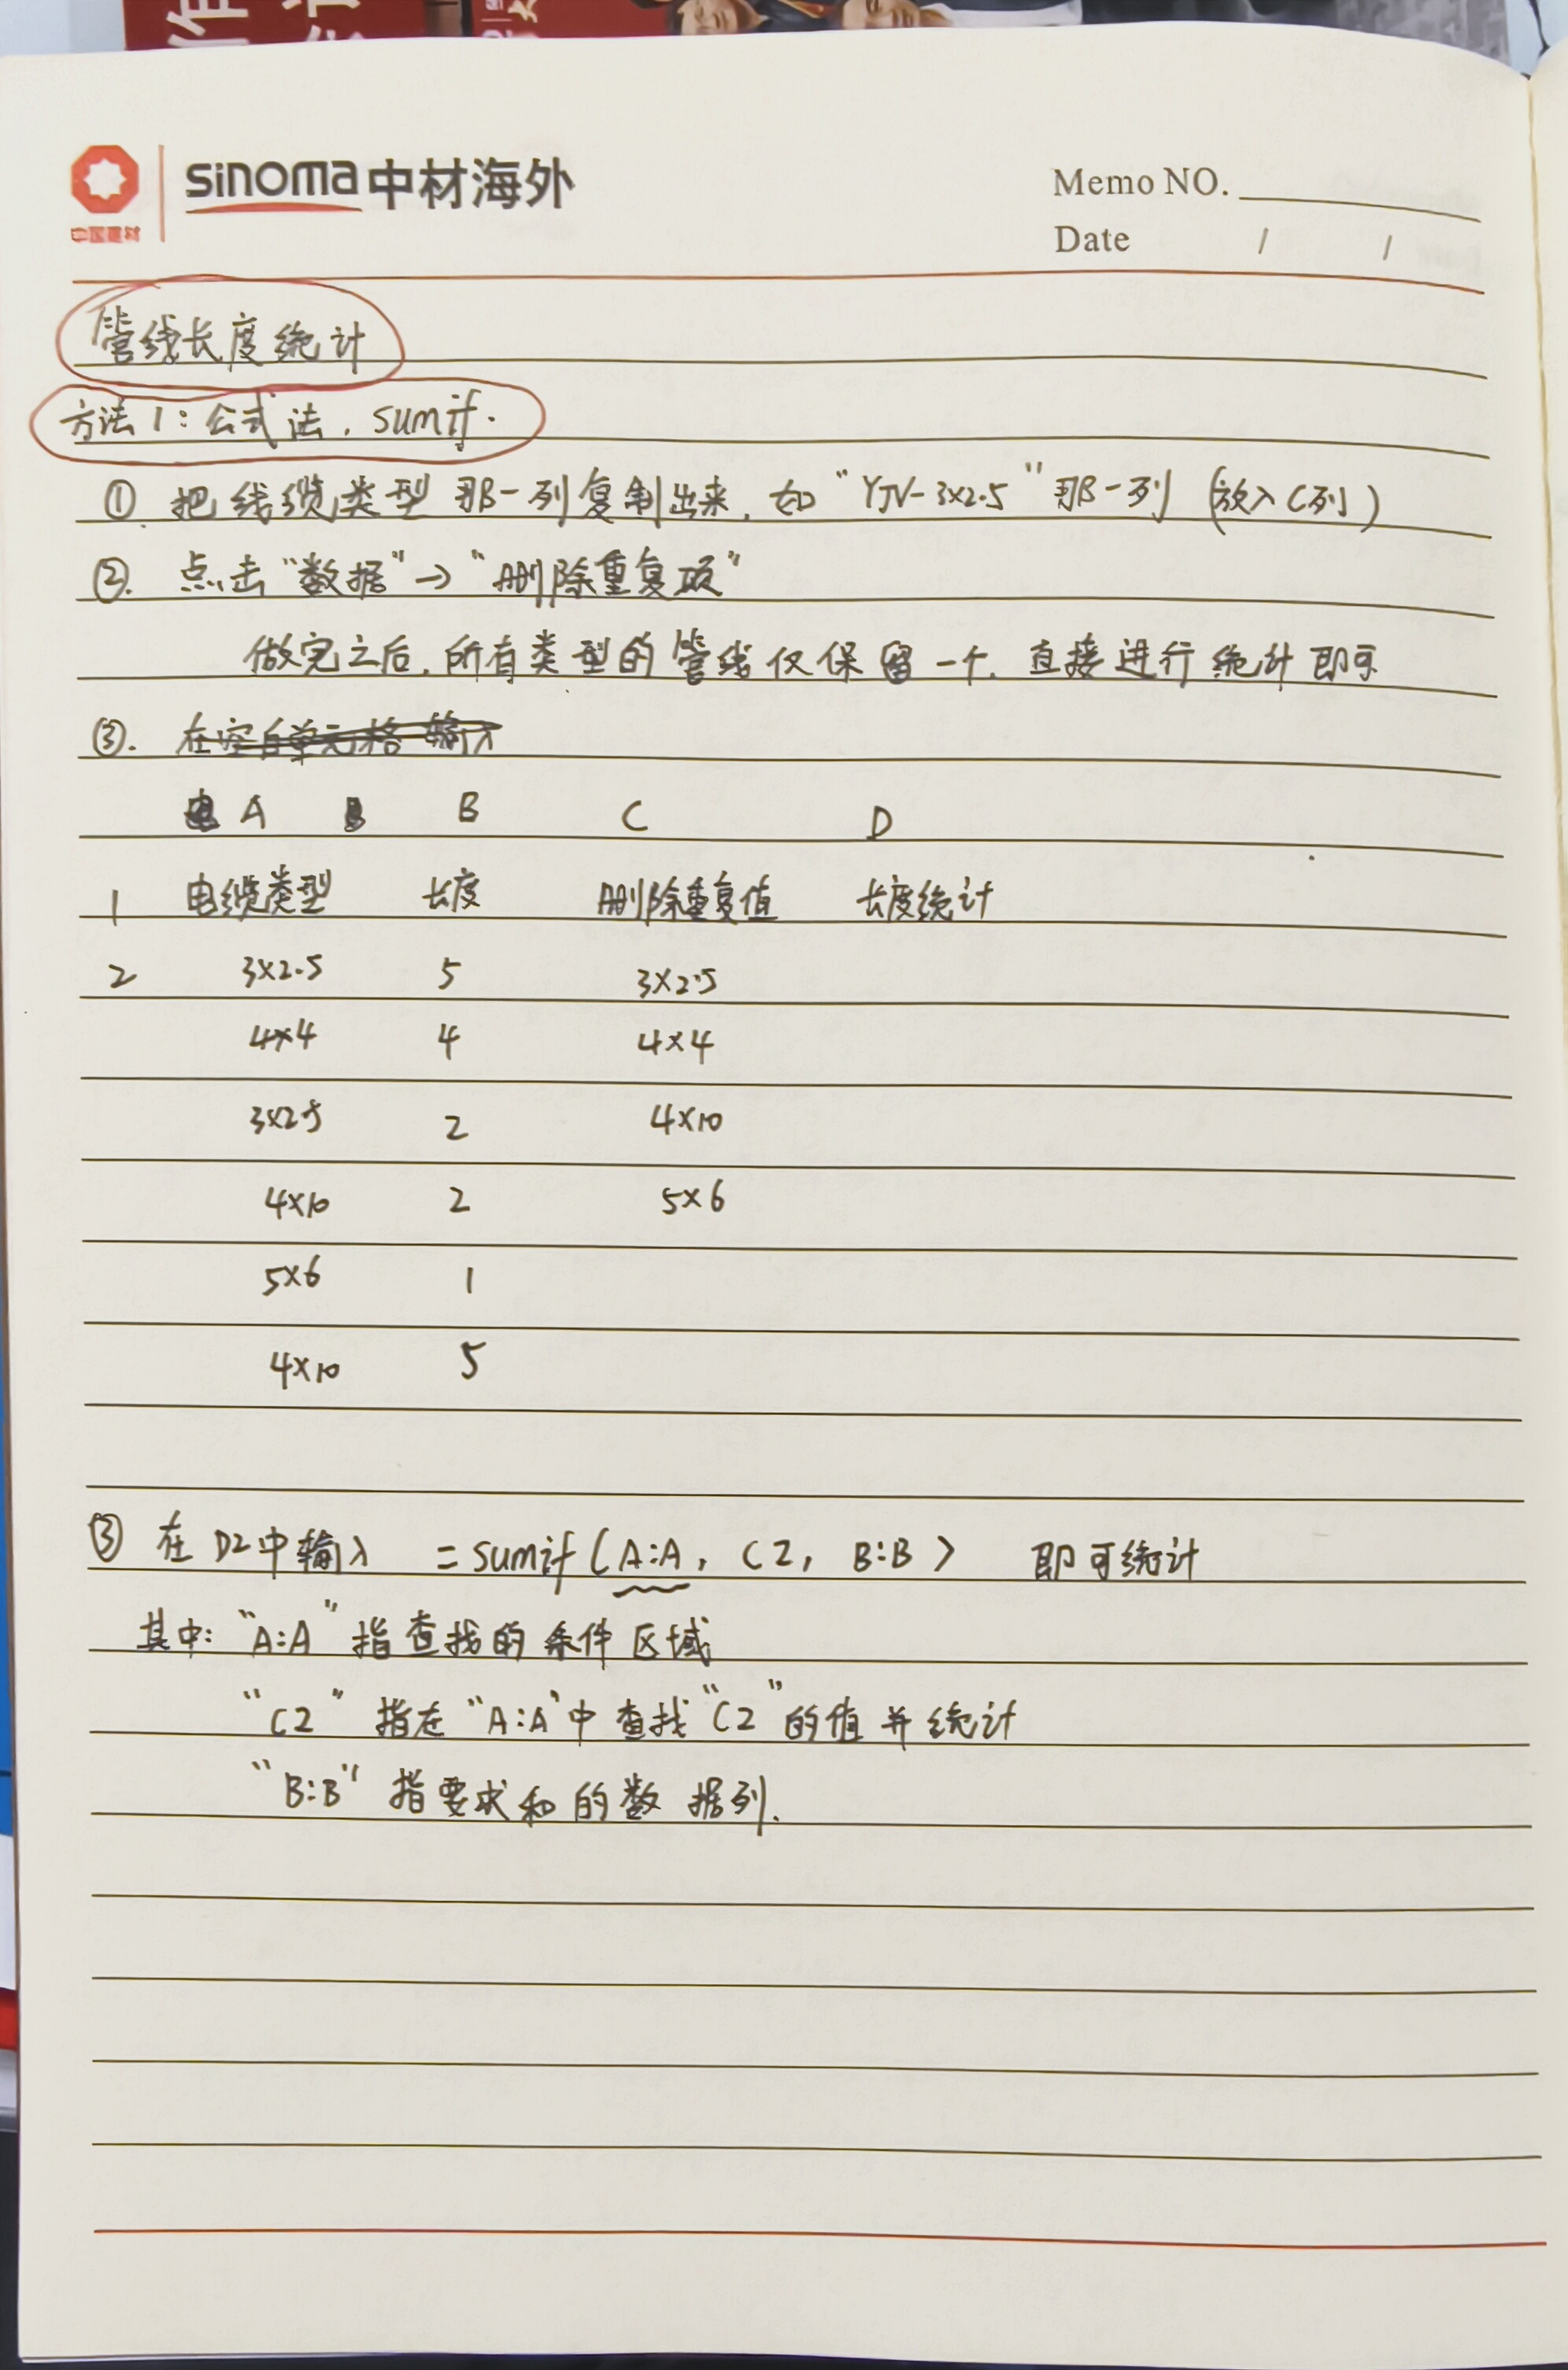 sinoma 中材海外
中国建材
Memo NO.
Date / /
管线长度统计
方法1：公式法，sumif.
① 把线缆类型那一列复制出来，如“YJV-3×2.5”那一列（放入C列）
②. 点击“数据”→“删除重复项”
做完之后，所有类型的管线仅保留一个，直接进行统计即可
③. 在空白单元格输入
A B C D
1 电缆类型 长度 删除重复值 长度统计
2 3×2.5 5 3×2.5
4×4 4 4×4
3×2.5 2 4×10
4×10 2 5×6
5×6 1
4×10 5
③ 在D2中输入 =sumif(A:A, C2, B:B) 即可统计
其中：“A:A”指查找的条件区域
“C2”指在“A:A”中查找“C2”的值并统计
“B:B”指要求和的数据列.